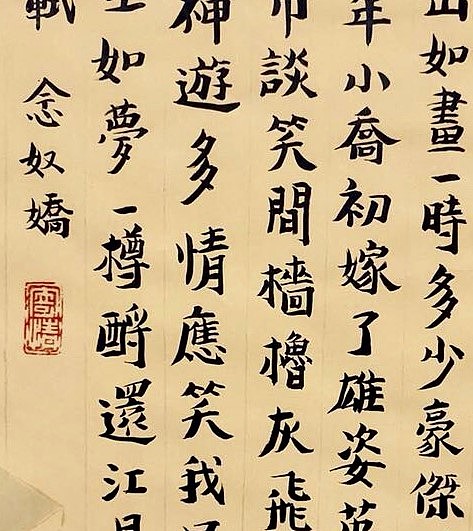 山如畫一時多少豪傑
年小喬初嫁了雄姿英
巾談笑間檣櫓灰飛
神遊多情應笑我
如夢一樽酹還江月
軾 念奴嬌